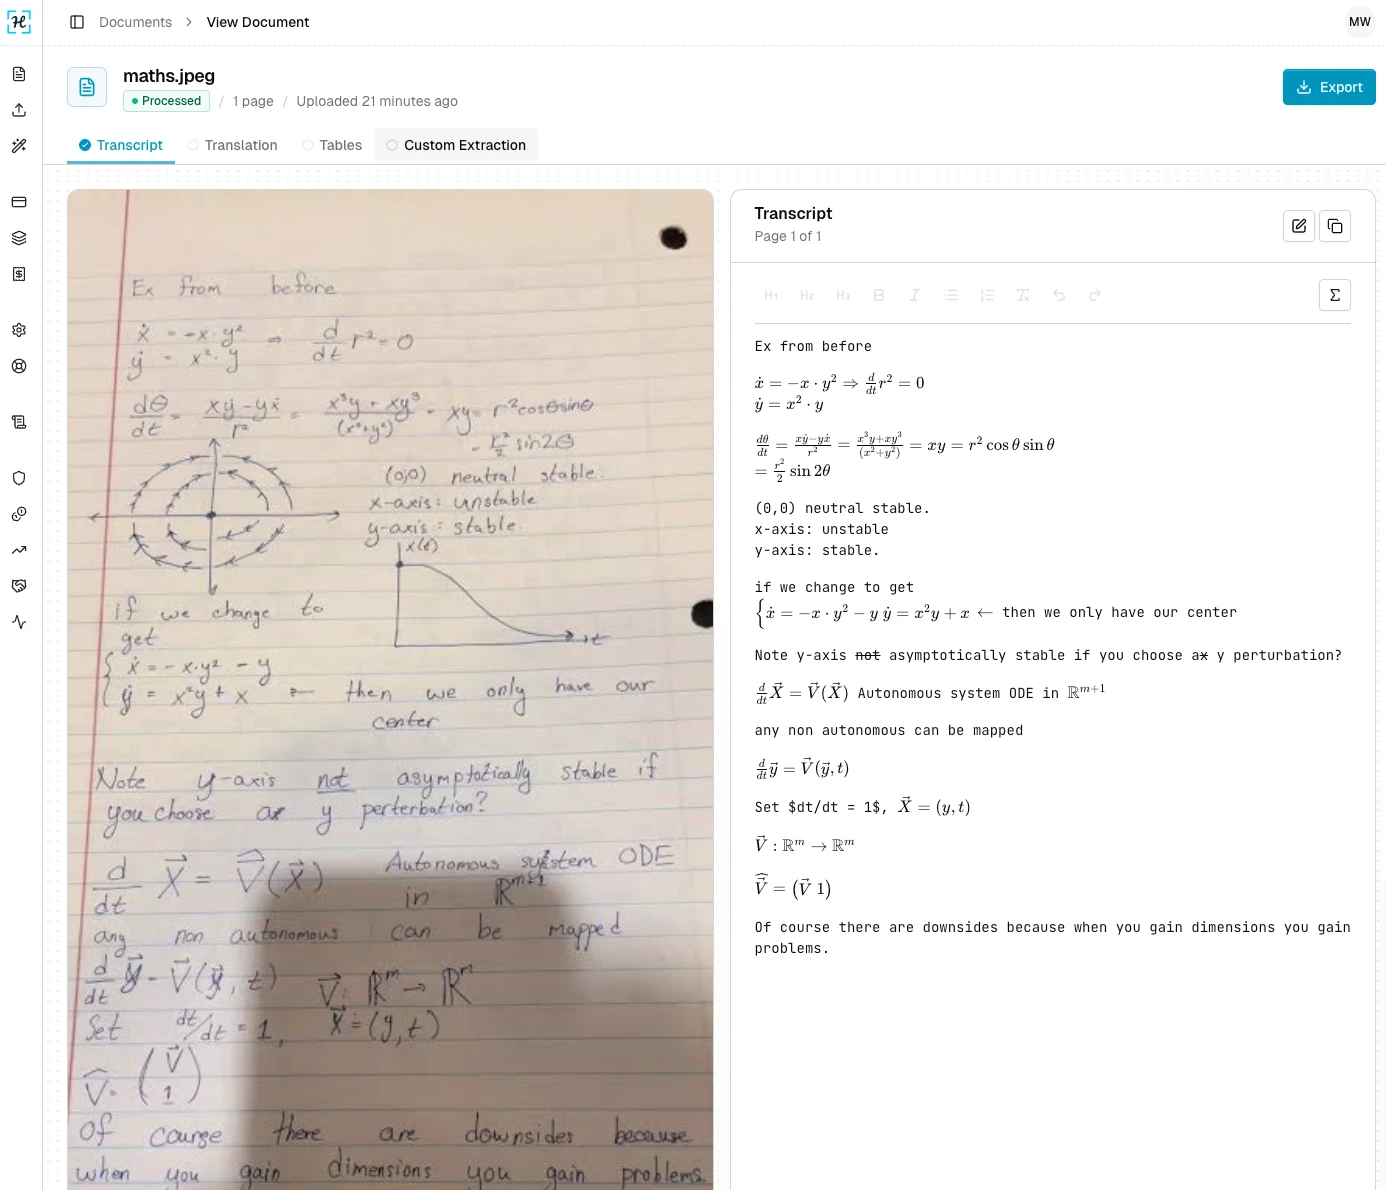 Documents > View Document
MW
maths.jpeg
Processed / 1 page / Uploaded 21 minutes ago
Export
Transcript Translation Tables Custom Extraction
Ex from before
ẋ = -x·y² ⇒ d/dt r² = 0
ẏ = x²·y
dθ/dt = (xẏ - yẋ)/r² = (x³y + xy³)/(x²+y²) = xy = r²cosθsinθ
= r²/2 sin2θ
(0,0) neutral stable.
x-axis: unstable
y-axis: stable.
x(t)
t
if we change to
get
{ ẋ = -x·y² - y
ẏ = x²y + x ← then we only have our
center
Note y-axis not asymptotically stable if
you choose a y perterbation?
d/dt X⃗ = V̂⃗(X⃗) Autonomous system ODE
in ℝᵐ⁺¹
any non autonomous can be mapped
d/dt y⃗ = V⃗(y⃗, t) V⃗: ℝᵐ → ℝᵐ
Set dt/dt = 1, X⃗ = (y, t)
V̂ = (V⃗
1)
Of course there are downsides because
when you gain dimensions you gain problems.
Transcript
Page 1 of 1
H1 H2 H3 B I Tx Σ
Ex from before
ẋ = −x · y² ⇒ d/dt r² = 0
ẏ = x² · y
dθ/dt = (xẏ−yẋ)/r² = (x³y+xy³)/(x²+y²) = xy = r² cos θ sin θ
= r²/2 sin 2θ
(0,0) neutral stable.
x-axis: unstable
y-axis: stable.
if we change to get
{ẋ = −x · y² − y ẏ = x²y + x ← then we only have our center
Note y-axis not asymptotically stable if you choose ax y perturbation?
d/dt X⃗ = V⃗(X⃗) Autonomous system ODE in ℝᵐ⁺¹
any non autonomous can be mapped
d/dt y⃗ = V⃗(y⃗, t)
Set $dt/dt = 1$, X⃗ = (y, t)
V⃗ : ℝᵐ → ℝᵐ
V̂⃗ = (V⃗ 1)
Of course there are downsides because when you gain dimensions you gain
problems.